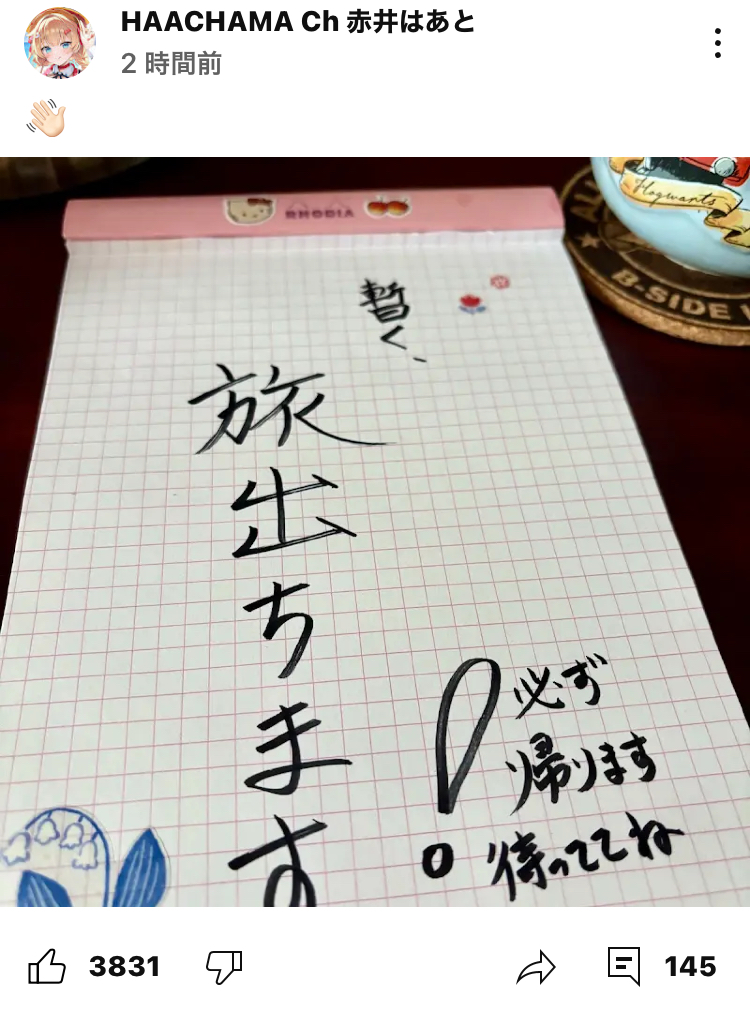 HAACHAMA Ch 赤井はあと
2 時間前
RHODIA
Hogwarts
B-SIDE
暫く、
旅出ちます
!
必ず
帰ります
待っててね
3831
145